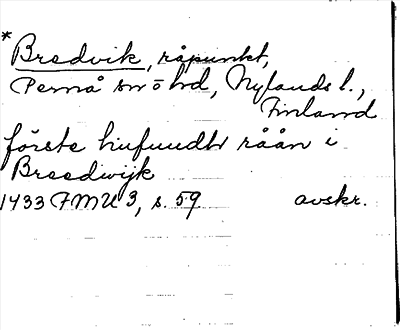 * Bredvik, råpunkt,
Pernå sn o hd, Nylands l.,
Finland
förste hufuudh råån i
Breedwijk
1433 FMU 3, s. 59 avskr.